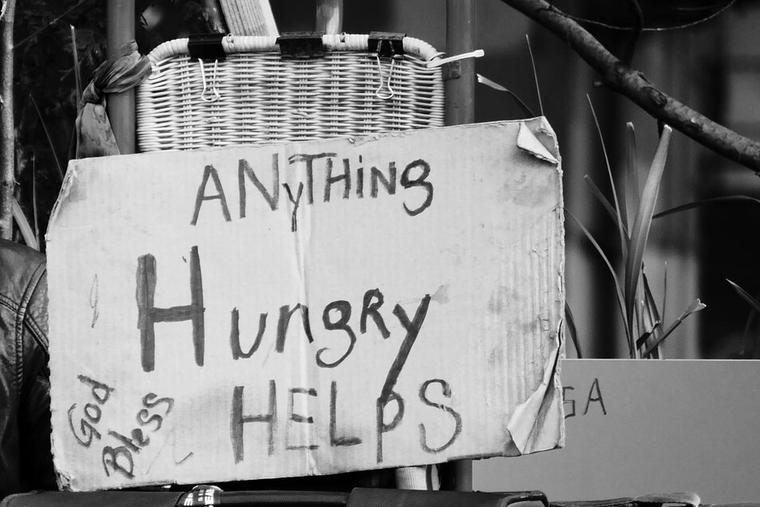 ANyTHiNg
HungRy
HELPS
God
Bless
GA